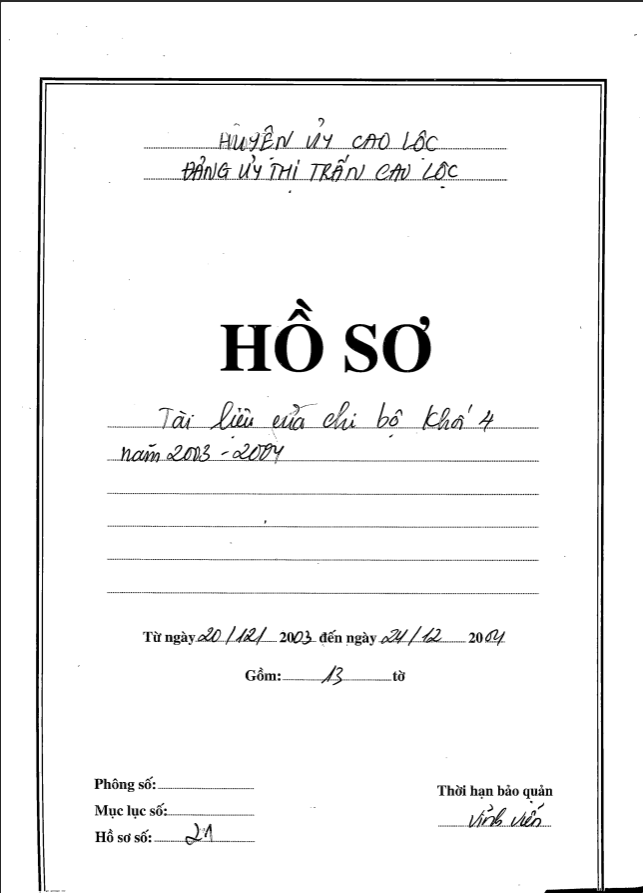 HUYỆN ỦY CAO LỘC
ĐẢNG ỦY THỊ TRẤN CAO LỘC
HỒ SƠ
Tài liệu của chi bộ Khối 4
năm 2003 - 2004
Từ ngày 20/12/ 2003 đến ngày 24/12 2004
Gồm: 13 tờ
Phông số:
Mục lục số:
Hồ sơ số: 21
Thời hạn bảo quản
Vĩnh viễn